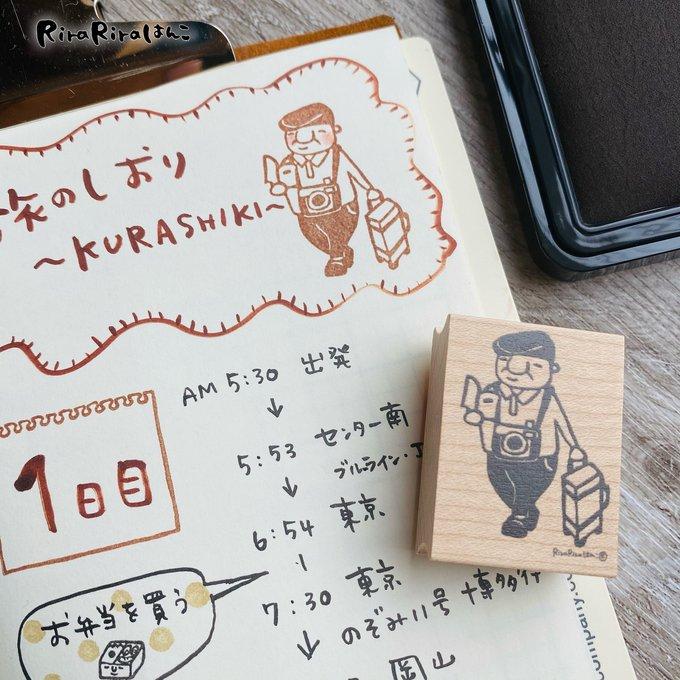 RiraRiraはんこ
旅のしおり
~KURASHIKI~
AM 5:30 出発
↓
5:53 センター南
ブルーライン・J
↓
6:54 東京
7:30 東京
のぞみ11号 博多行
↓
岡山
1日目
お弁当を買う
RiraRiraはんこ©
ompany.c